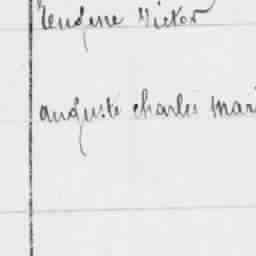 Eugene Victor
auguste charles mari